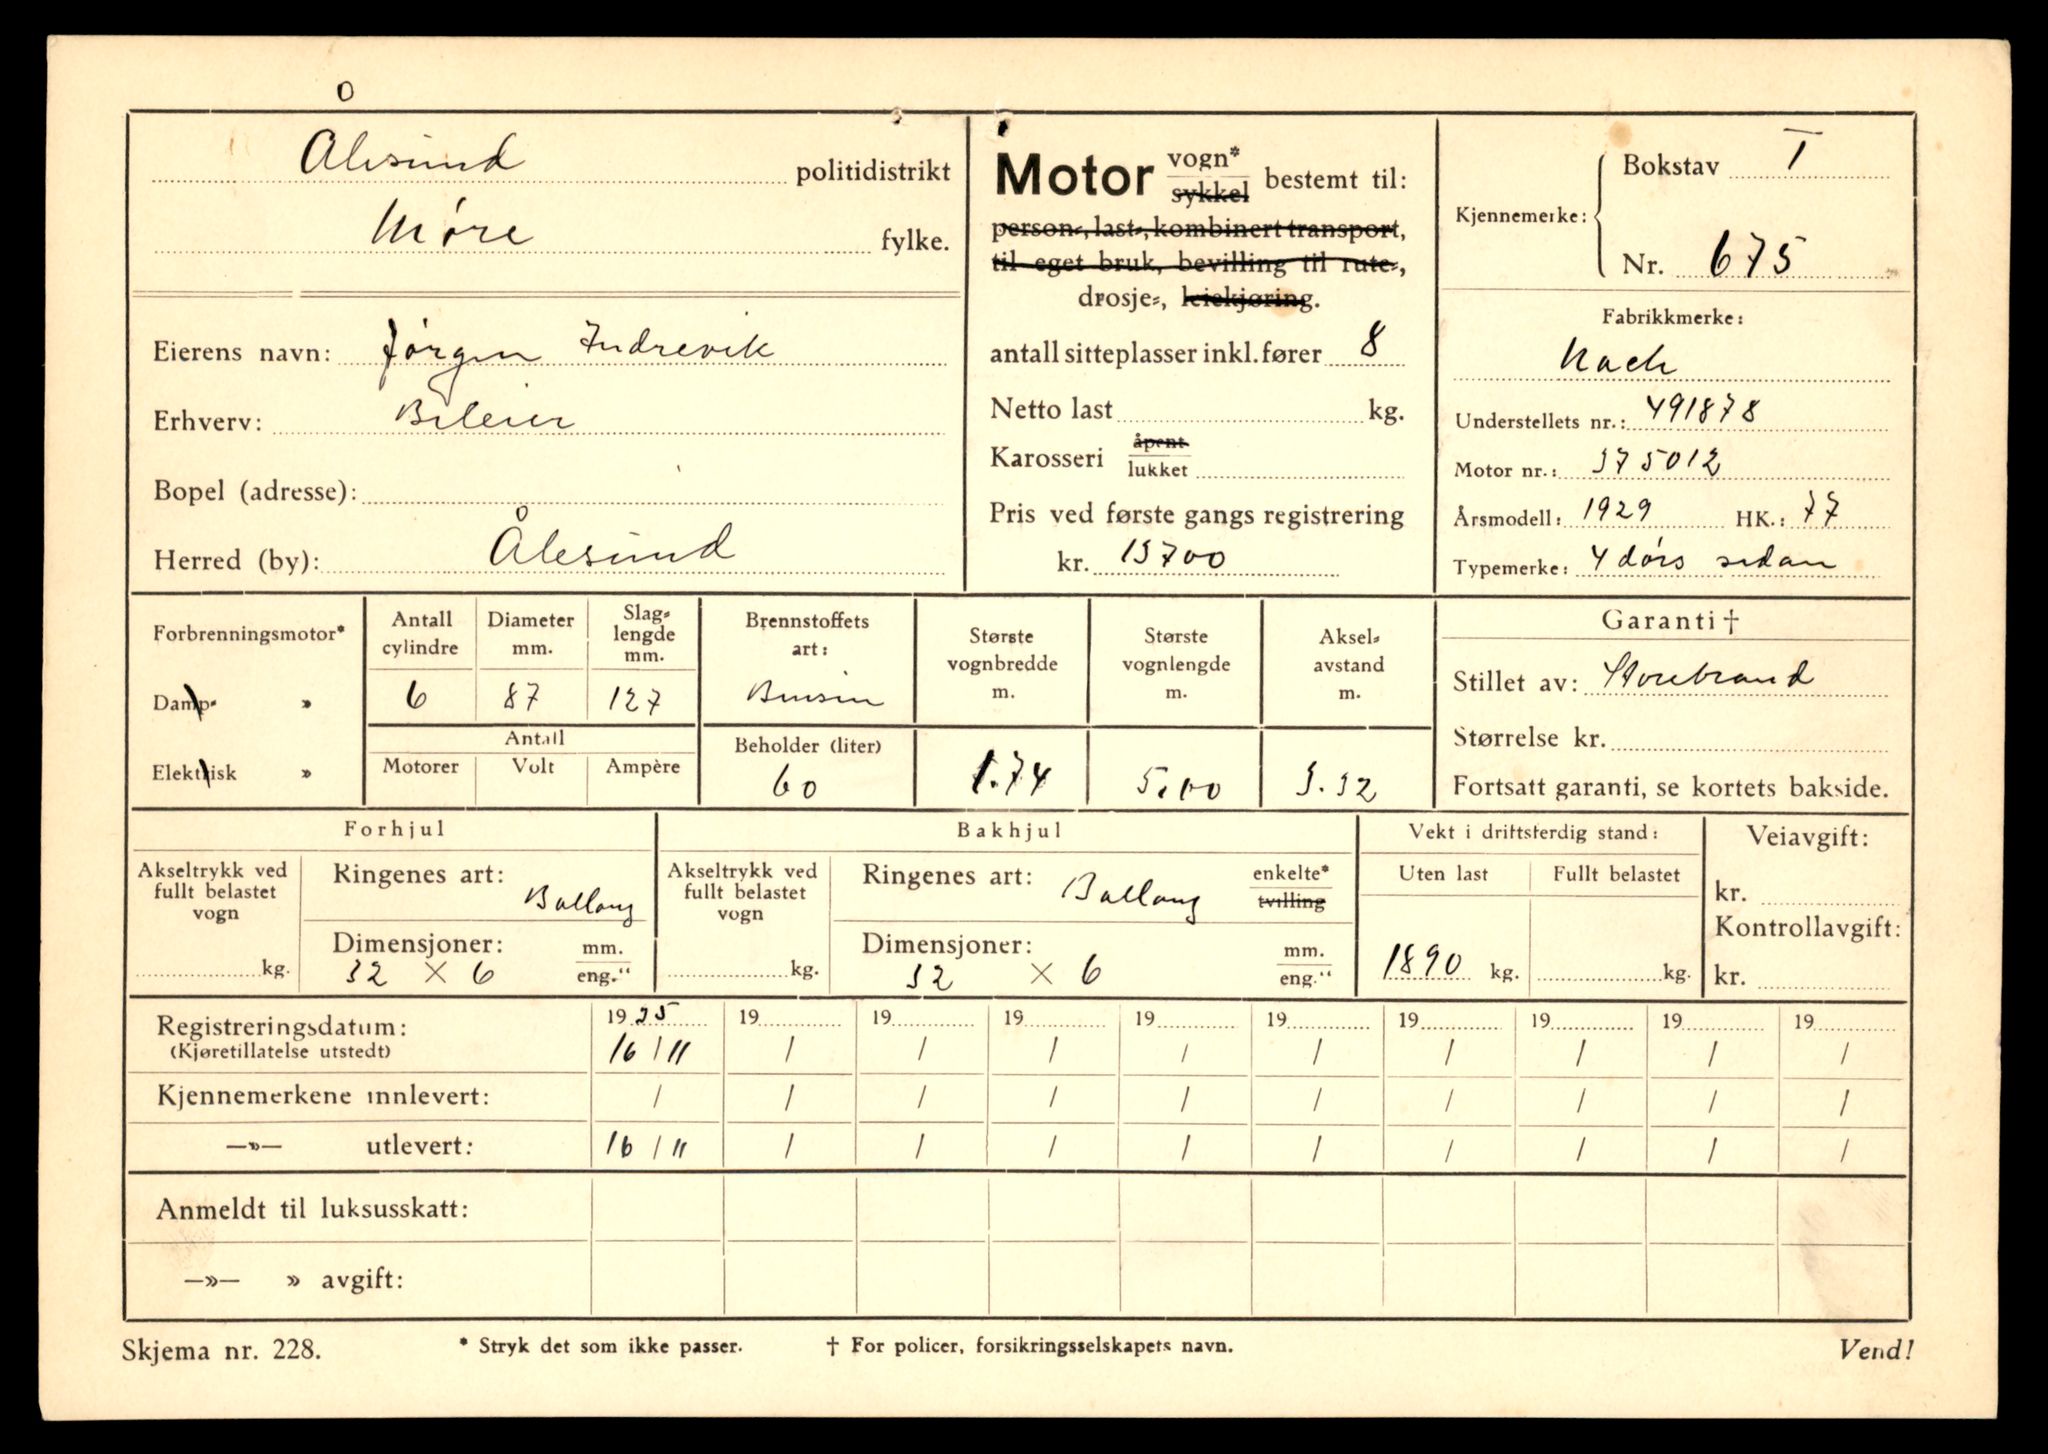 Ålesund politidistrikt
Møre fylke.
Eierens navn: Jørgen Indrevik
Erhverv: Bileier
Bopel (adresse):
Herred (by): Ålesund
Motor vogn* sykkel bestemt til:
person-, last-, kombinert transport,
til eget bruk, bevilling til rute-,
drosje-, leiekjøring.
antall sitteplasser inkl. fører 8
Netto last kg.
Karosseri åpent lukket
Pris ved første gangs registrering
kr. 13700
Kjennemerke: Bokstav T
Nr. 675
Fabrikkmerke:
Nash
Understellets nr.: 491878
Motor nr.: 375012
Årsmodell: 1929 HK.: 77
Typemerke: 4 dørs sedan
Forbrenningsmotor*
Damp- »
Elektrisk »
Antall cylindre
6
Diameter mm.
87
Slag-lengde mm.
127
Antall
Motorer Volt Ampère
Brennstoffets art:
Bensin
Beholder (liter)
60
Største vognbredde m.
1.74
Største vognlengde m.
5.00
Aksel-avstand m.
3.32
Garanti †
Stillet av: Storebrand
Størrelse kr.
Fortsatt garanti, se kortets bakside.
Forhjul
Akseltrykk ved fullt belastet vogn
kg.
Ringenes art: Ballong
Dimensjoner: mm.
32 × 6 eng."
Bakhjul
Akseltrykk ved fullt belastet vogn
kg.
Ringenes art: Ballong enkelte* tvilling
Dimensjoner: mm.
32 × 6 eng."
Vekt i driftsferdig stand:
Uten last Fullt belastet
1890 kg. kg.
Veiavgift:
kr.
Kontrollavgift:
kr.
Registreringsdatum: 1935 19 19 19 19 19 19 19 19 19
(Kjøretillatelse utstedt) 16/11 / / / / / / / / /
Kjennemerkene innlevert: / / / / / / / / / /
—»— utlevert: 16/11 / / / / / / / / /
Anmeldt til luksusskatt:
—»— » avgift:
Skjema nr. 228. * Stryk det som ikke passer. † For policer, forsikringsselskapets navn. Vend!